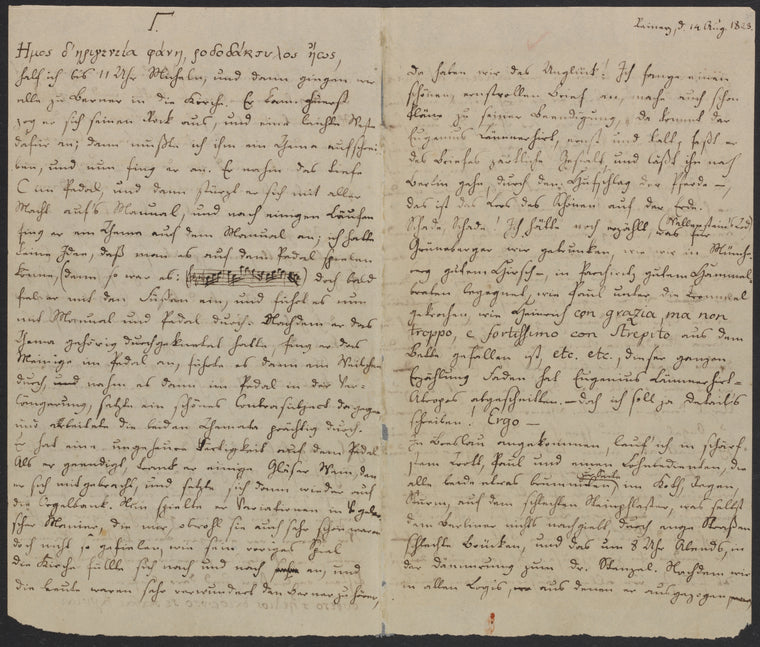 Γ.
Ημος δ'ηριγενεια φάνη, ροδοδάκτυλος ἤως,
half ich bis 11 Uhr Mucheln, und dann gingen wir
alle zu Berner in die Kirche. Er kam zuerst
zog er sich seinen Rock aus, und eine leichte Weste
dafür an; dann mußte ich ihm ein Thema aufschrei
ben, und nun fing er an. Er nahm das tiefe
C im Pedal, und dann stürzt er sich mit aller
Macht auf's Manual, und nach einigen Läufen
fing er ein Thema auf dem Manual an; ich hatte
keine Idee, daß man es auf dem Pedal spielen
könne, (denn so war es: ) doch bald
fiel er mit den Füßen ein, und führt es nun
mit Manual und Pedal durch. Nachdem er das
Thema gehörig durchgeknetet hatte fing er das
Meinige im Pedal an, führte es dann ein Weilchen
durch, und nahm es dann im Pedal in der Ver-
längerung, setzte ein schönes Contrasubject dagegen
und arbeitete die beiden Themata prächtig durch.
Er hat eine ungeheure Fertigkeit auf dem Pedal
Als er geendigt, trank er einige Gläser Wein, den
er sich mitgebracht, und setzte sich dann wieder auf
die Orgelbank. Nun spielte er Variationen in Vogler
scher Manier, die mir, obwohl sie auch sehr schön waren
doch nicht so gefielen, wie sein voriges Spiel
Die Kirche füllte sich nach und nach an, und
die Leute waren sehr verwundert den Berner zu hören,
Reinerz, d. 14 Aug. 1823.
Da haben wir das Unglück! Ich fange einen
schönen, ernstvollen Brief an, mache auch schon
Pläne zu seiner Beendigung, da kommt der
Eugenius Lämmerhirt, ernst und kalt, faßt er
des Briefes zärtliche Gestalt und läßt ihn nach
Berlin gehn, durch den Hufschlag der Pferde –,
das ist das Loos des Schönen auf der Erde.
Schade, Schade! Ich hätte noch erzählt, was für
Grüneberger wir getrunken, wie wir in Münch-
berg gutem Hirsch-, in Parchwitz gutem Hammel-
braten begegnet, wie Paul unter die Trommel
gekrochen, wie Heinrich con grazia, ma non
troppo, e fortissimo con strepito aus dem
Bette gefallen ist, etc. etc., dieser ganzen
Erzählung Faden hat Eugenius Lämmerhirt-
Atropos abgeschnitten. – doch ich soll ja details
schreiben! Ergo –
In Breslau angekommen, lauf' ich in scharf-
sem Trott, Paul und einen Lohnbedienten, die
alle beide etwas lahmten, im Koth, Regen,
Sturm, auf dem schlechten Steinpflaster, das selbst
dem Berliner nichts nachgiebt, durch enge Straßen
schlechte Brücken, und das um 8 Uhr Abends, in
der Dämmerung zum Dr. Stenzel. Nachdem wir
in allen Logis, aus denen er ausgezogen